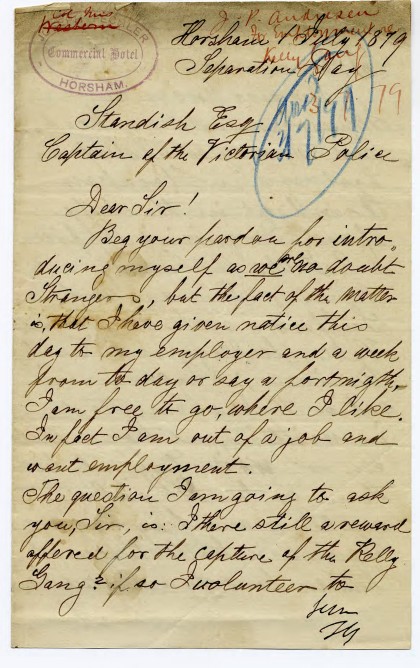 J. P. Anderson
to
Kelly Gang
Commercial Hotel
HORSHAM.
Horsham 1 July 1879
Separation Day
79
Standish Esq
Captain of the Victorian Police
Dear Sir!
Beg your pardon for intro-
ducing myself as we are no doubt
Strangers, but the fact of the matter
is, that I have given notice this
day to my employer and a week
from to day or say a fortnight,
I am free to go, where I like.
In fact I am out of a job and
want employment.
The question I am going to ask
you, Sir, is: I there still a reward
offered for the capture of the Kelly
Gang? if so I volunteer to